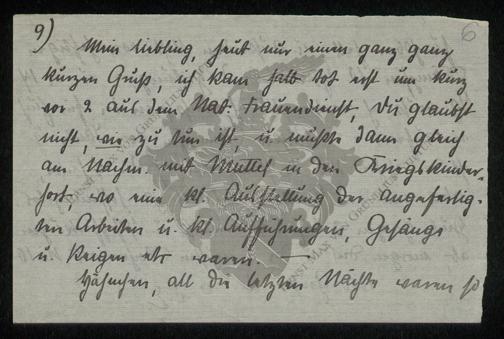 9)
6
Mein Liebling, heut nur einen ganz ganz
kurzen Gruß, ich kam halb tot erst um kurz
vor 2 aus dem Nat. Frauendienst, Du glaubst
nicht, wie zu tun ist, u. mußte dann gleich
am Nachm. mit Mutti in den Kriegskinder-
hort, wo eine kl. Ausstellung der angefertig-
ten Arbeiten u. kl. Aufführungen, Gesänge
u. Reigen etc waren. —
, all die letzten Nächte waren so